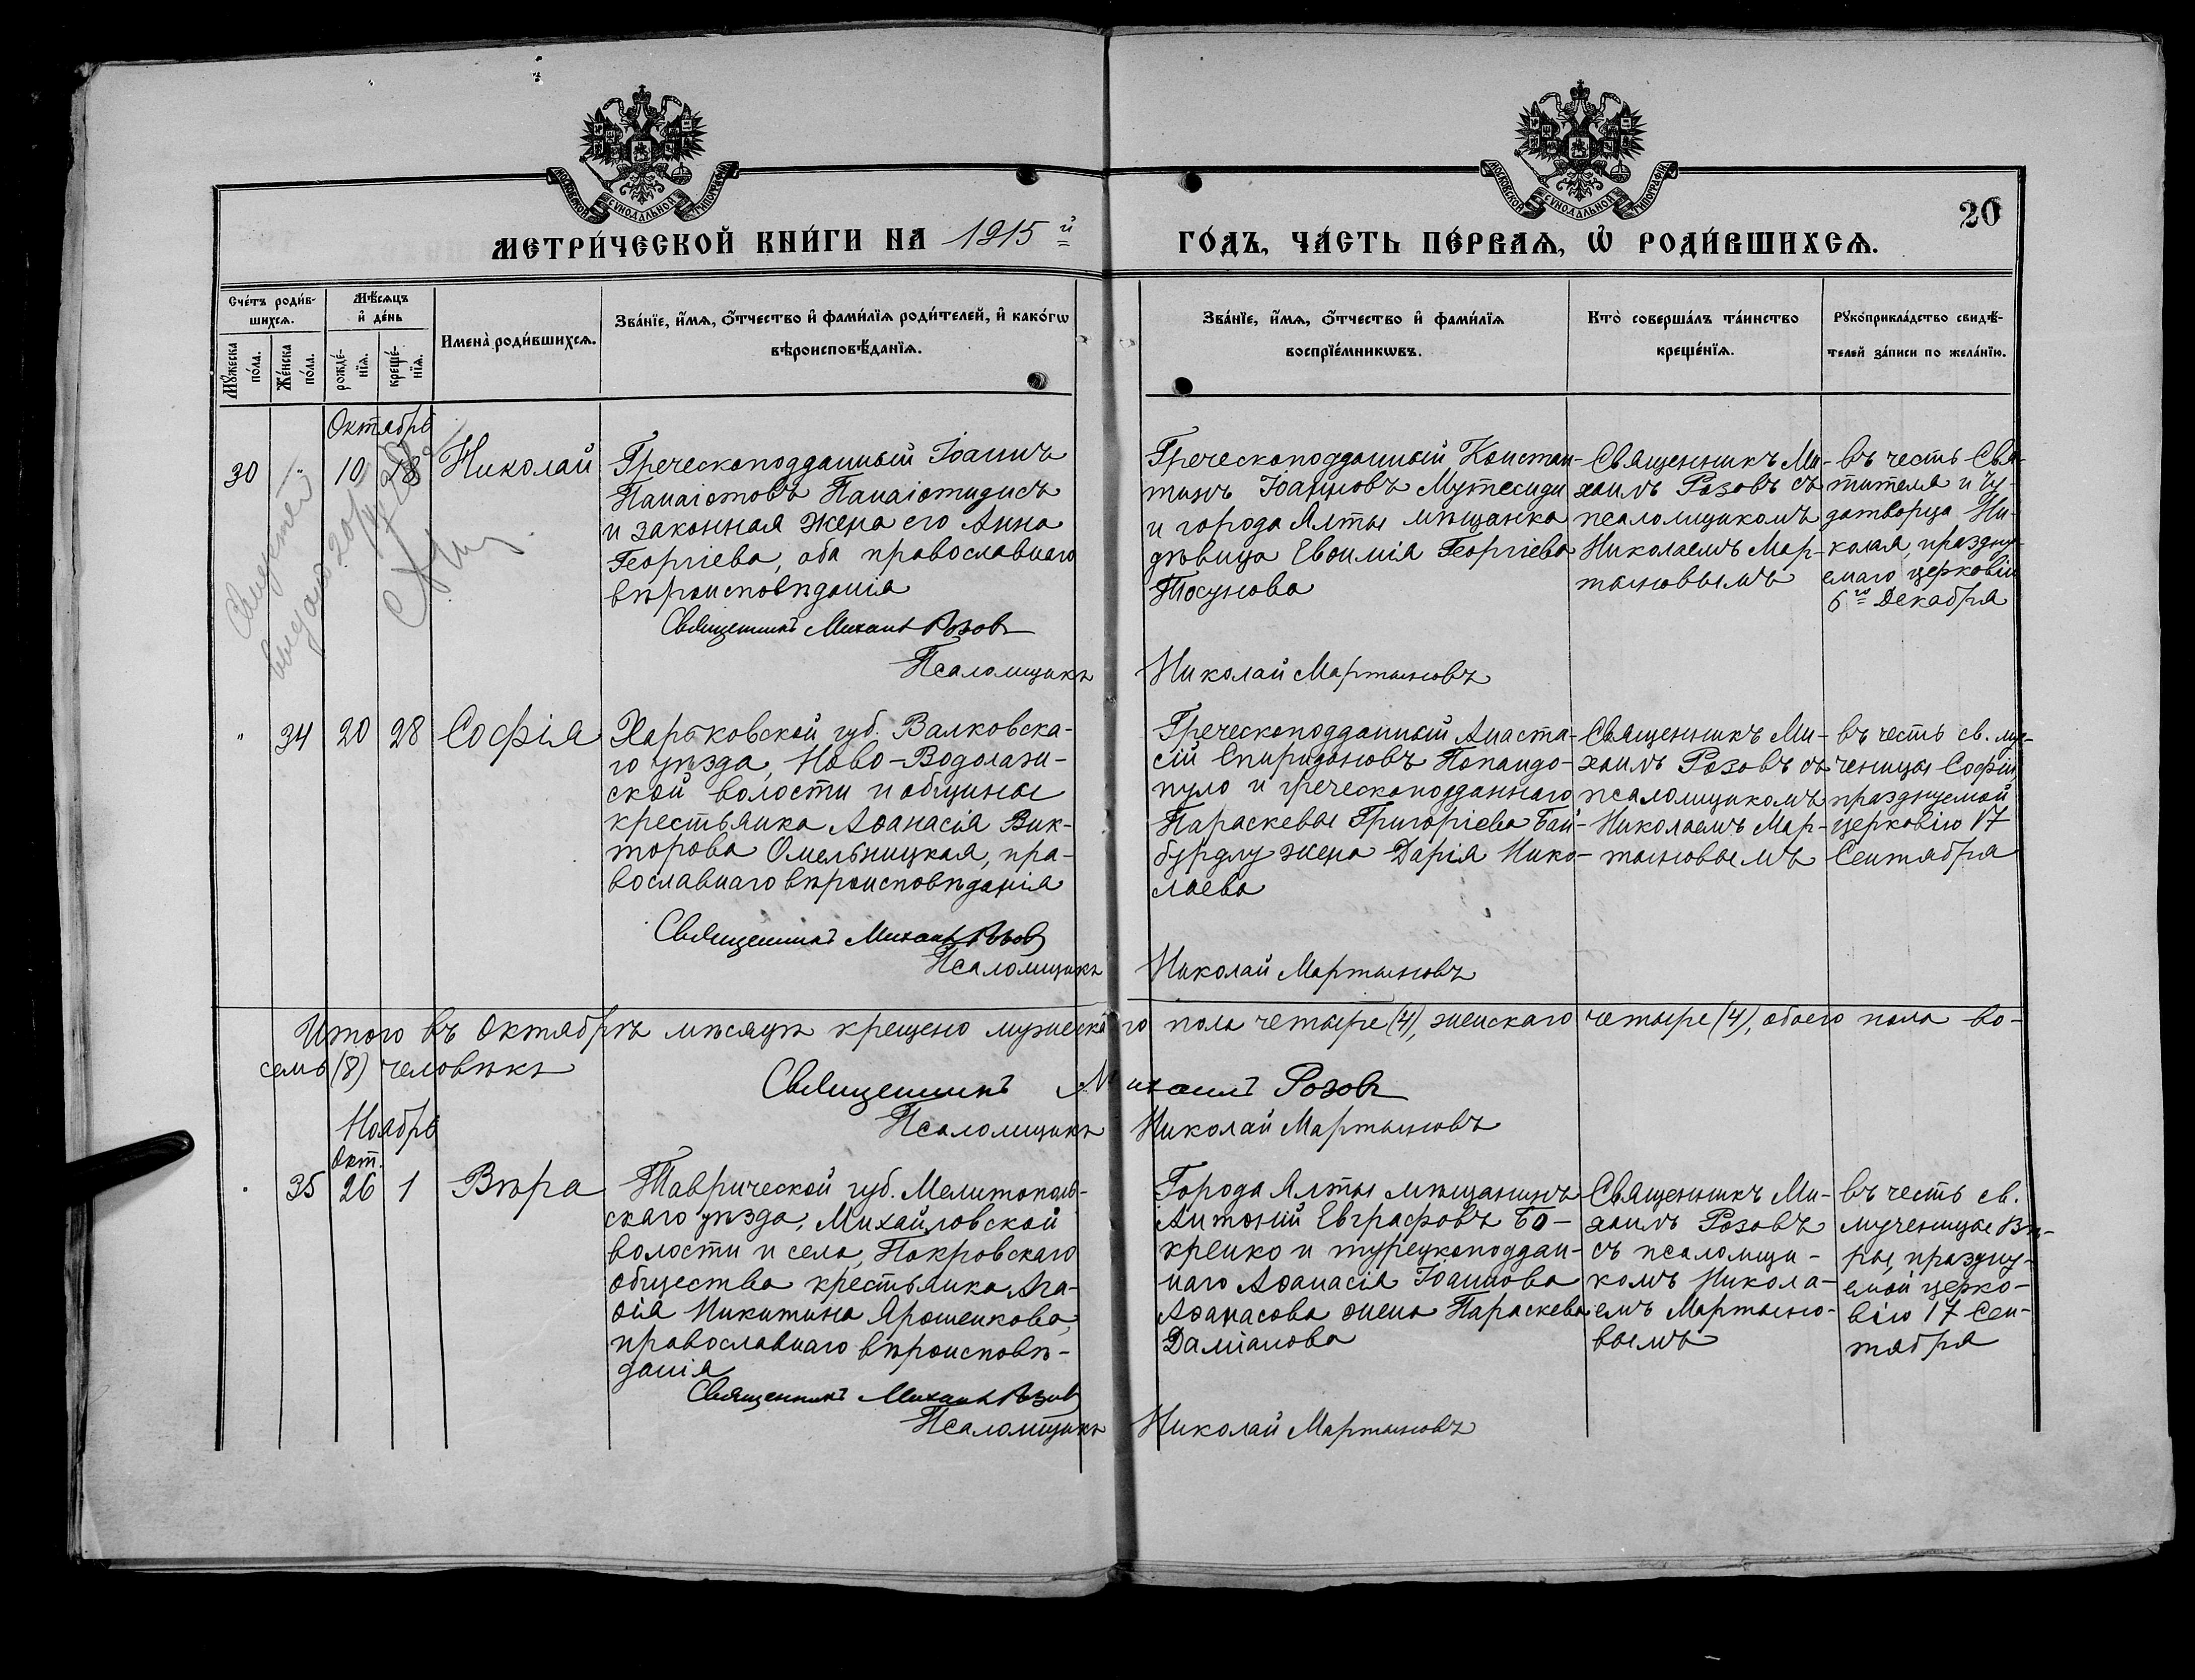 МОСКОВСКОЙ СѴНОДАЛЬНОЙ ТИПОГРАФІИ
МОСКОВСКОЙ СѴНОДАЛЬНОЙ ТИПОГРАФІИ
20
МЕТРИ́ЧЕСКОЙ КНИ́ГИ НА 1915й
ГО́ДЪ, ЧА́СТЬ ПЕ́РВАѦ, Ѽ РОДИ́ВШИХСѦ.
Сче́тъ роди́в-
шихсѧ.
Мѣ́сѧцъ
и҆ де́нь
Мꙋ́жеска
по́ла.
Же́нска
по́ла.
рожде́-
нїѧ.
креще́-
нїѧ.
Имена̀ роди́вшихсѧ.
Зва́нїе, и҆́мѧ, ѻ҆́тчество и҆ фами́лїѧ роди́телей, и҆ како́гѡ
вѣроисповѣ́данїѧ.
Зва́нїе, и҆́мѧ, ѻ҆́тчество и҆ фами́лїѧ
воспрїе́мникѡвъ.
Кто̀ соверша́лъ та́инство
креще́нїѧ.
Рꙋкоприкла́дство свидѣ́-
телей за́писи по жела́нїю.
Октябрь
30 " 10 28 Николай
Греческоподданный Іоаннъ
Панаіотовъ Панаіотидисъ
и законная жена его Анна
Георгіева, оба православнаго
вѣроисповѣданія
Священникъ Михаилъ Розовъ
Псаломщикъ
Греческоподданный Констан-
тинъ Іоанновъ Мутесиди
и города Ялты мѣщанка
дѣвица Евѳимія Георгіева
Тосунова
Николай Мартыновъ
Священникъ Ми-
хаилъ Розовъ съ
псаломщикомъ
Николаемъ Мар-
тыновымъ
въ честь Свя-
тителя и Чу-
дотворца Ни-
колая, праздну-
емаго церковію
6го Декабря
" 34 20 28 Софія
Харьковской губ. Валковска-
го уѣзда, Ново-Водолаж-
ской волости и общины
крестьянка Аѳанасія Вик-
торова Омельницкая, пра-
вославнаго вѣроисповѣданія
Священникъ Михаилъ Розовъ
Псаломщикъ
Греческоподданный Анаста-
сій Спиридоновъ Попандо-
пуло и греческоподданнаго
Параскевы Григоріева Бай-
бурдлу жена Дарія Нико-
лаева
Николай Мартыновъ
Священникъ Ми-
хаилъ Розовъ съ
псаломщикомъ
Николаемъ Мар-
тыновымъ
въ честь св. му-
ченицы Софіи,
празднуемой
церковію 17
Сентября
Итого въ Октябрѣ мѣсяцѣ крещено мужеска го пола четыре (4), женскаго четыре (4), обоего пола во-
семь (8) человѣкъ
Священникъ Михаилъ Розовъ
Псаломщикъ Николай Мартыновъ
Ноябрь
Окт.
" 35 26 1 Вѣра
Таврической губ. Мелитополь-
скаго уѣзда, Михайловской
волости и села, Покровскаго
общества крестьянка Ага-
ѳія Никитина Ярошенкова,
православнаго вѣроисповѣ-
данія
Священникъ Михаилъ Розовъ
Псаломщикъ
Города Ялты мѣщанинъ
Антоній Евграфовъ Бо-
кренко и турецкоподдан-
наго Аѳанасія Іоаннова
Аѳанасова жена Параскева
Даміанова
Николай Мартыновъ
Священникъ Ми-
хаилъ Розовъ
съ псаломщи-
комъ Никола-
емъ Мартыно-
вымъ
въ честь св.
мученицы Вѣ-
ры, праздну-
емой церко-
вію 17 Сен-
тября